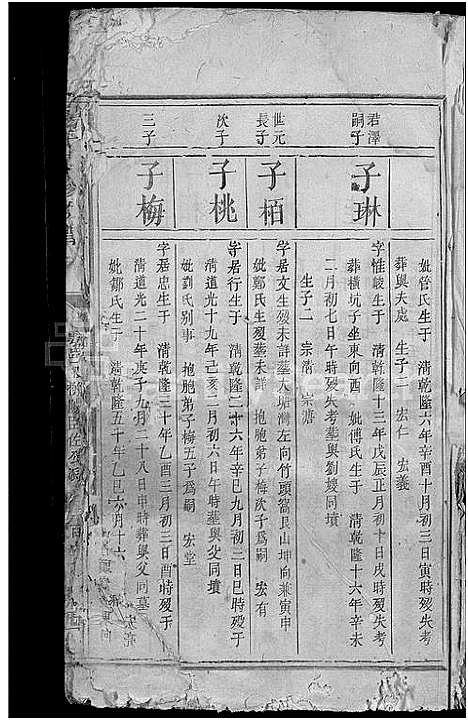 妣管氏生于　清乾隆六年辛酉十月初三日寅時歿失考
葬與夫處　生子二　宏仁　宏義
君澤嗣子
子琳
字惟峻生于　清乾隆十三年戊辰正月初十日戌時歿失考
葬橫坑子坐東向酉　妣傅氏生于　清乾隆十六年辛未
二月初七日午時歿失考葬與劉嫂同墳
生子二　宗清　宗濂
世元長子
子栢
字居文生歿未詳葬大塘灣左向竹頭窩艮山坤向兼寅申
妣鄭氏生歿葬未詳　抱胞弟子梅次子為嗣　宏有
次子
子桃
字居行生于　清乾隆二十六年辛巳九月初二日巳時歿于
清道光十九年己亥二月初六日午時葬與父同墳
妣劉氏別事　抱胞弟子梅五子為嗣　宏堂
三子
子梅
字居忠生于　清乾隆三十年乙酉三月初三日酉時歿于
清道光二十年庚子九月二十八日申時葬與父同墓
妣鄒氏生于　清乾隆五十年乙巳六月十六